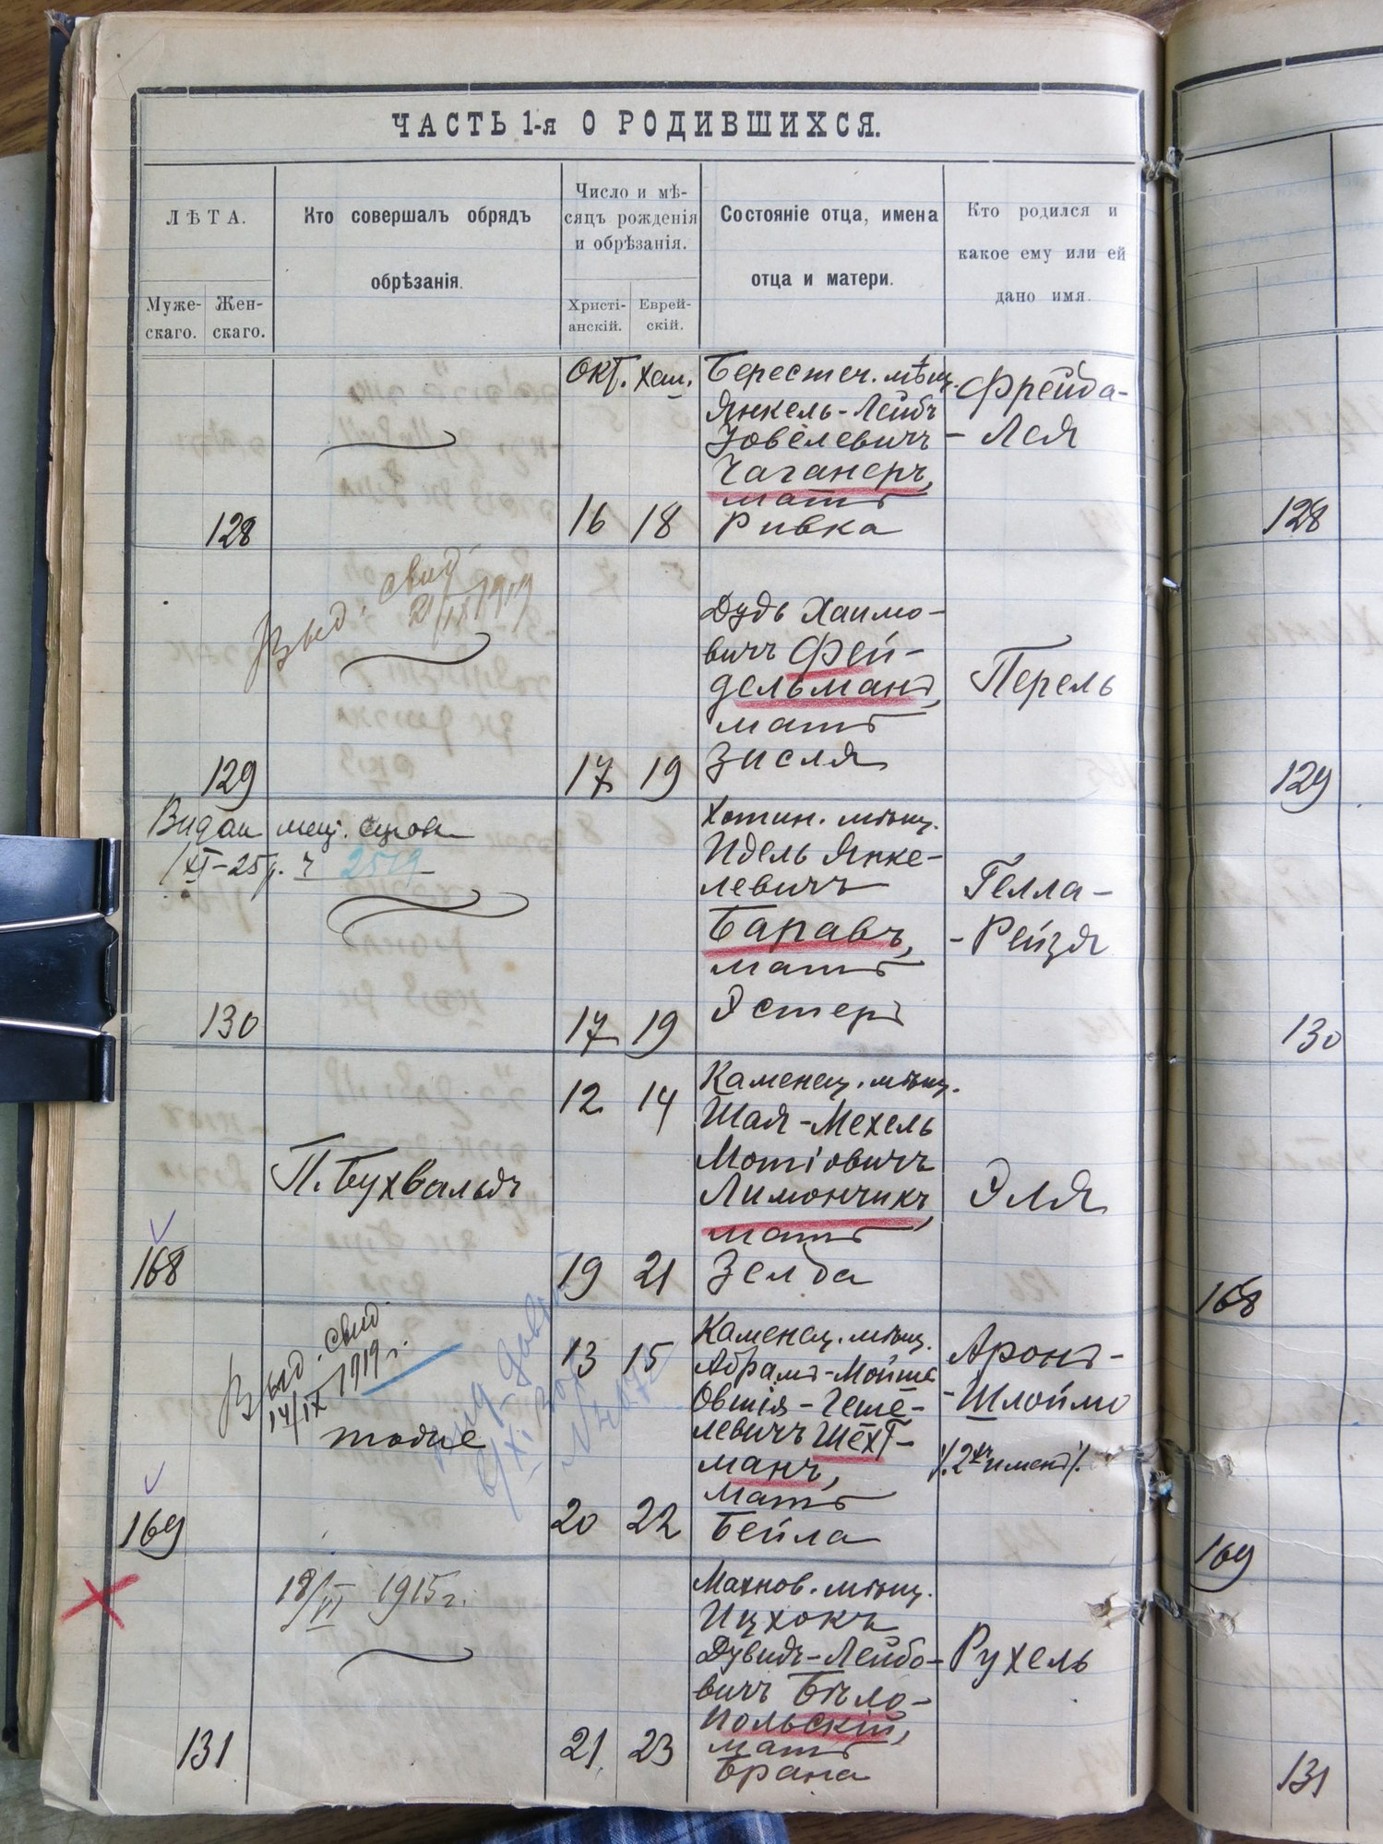 ЧАСТЬ 1-я О РОДИВШИХСЯ.
ЛѢТА.
Муже-
скаго.
Жен-
скаго.
Кто совершалъ обрядъ
обрѣзанія.
Число и мѣ-
сяцъ рожденія
и обрѣзанія.
Христі-
анскій.
Еврей-
скій.
Состояніе отца, имена
отца и матери.
Кто родился и
какое ему или ей
дано имя.
128
Окт. Хеш.
16 18
Берестеч. мѣщ.
Янкель-Лейбъ
Іовелевичъ
Чаганеръ,
мать
Ривка
Фрейда-
- Лея
128
129
Выд. свид.
21/IX 1919
17 19
Дудь Хаимо-
вичъ Фей-
дельманъ,
мать
Зисля
Перель
129
Видан мец.
1/XI-25 р. ч 2519
130
17 19
Хотин. мѣщ.
Идель Янке-
левичъ
Баравъ,
мать
Эстеръ
Гелла-
- Рейзя
130
168
П. Бухвальдъ
12 14
19 21
Каменец. мѣщ.
Шая-Мехель
Мотіовичъ
Лимончикъ,
мать
Зелда
Эля
168
169
Выд. свид.
14/IX 1919 г.
тоже
6/XI
13 15
20 22
Каменец. мѣщ.
Абрамъ-Мойше
Овшія-Геше-
левичъ Шехт-
манъ,
мать
Бейла
Аронъ-
- Шлоймо
/2хъ именъ/
169
131
18/VI 1915 г.
21 23
Махнов. мѣщ.
Ицхокъ
Дувидъ-Лейбо-
вичъ Бѣло-
польскій,
мать
Брана
Рухель
131